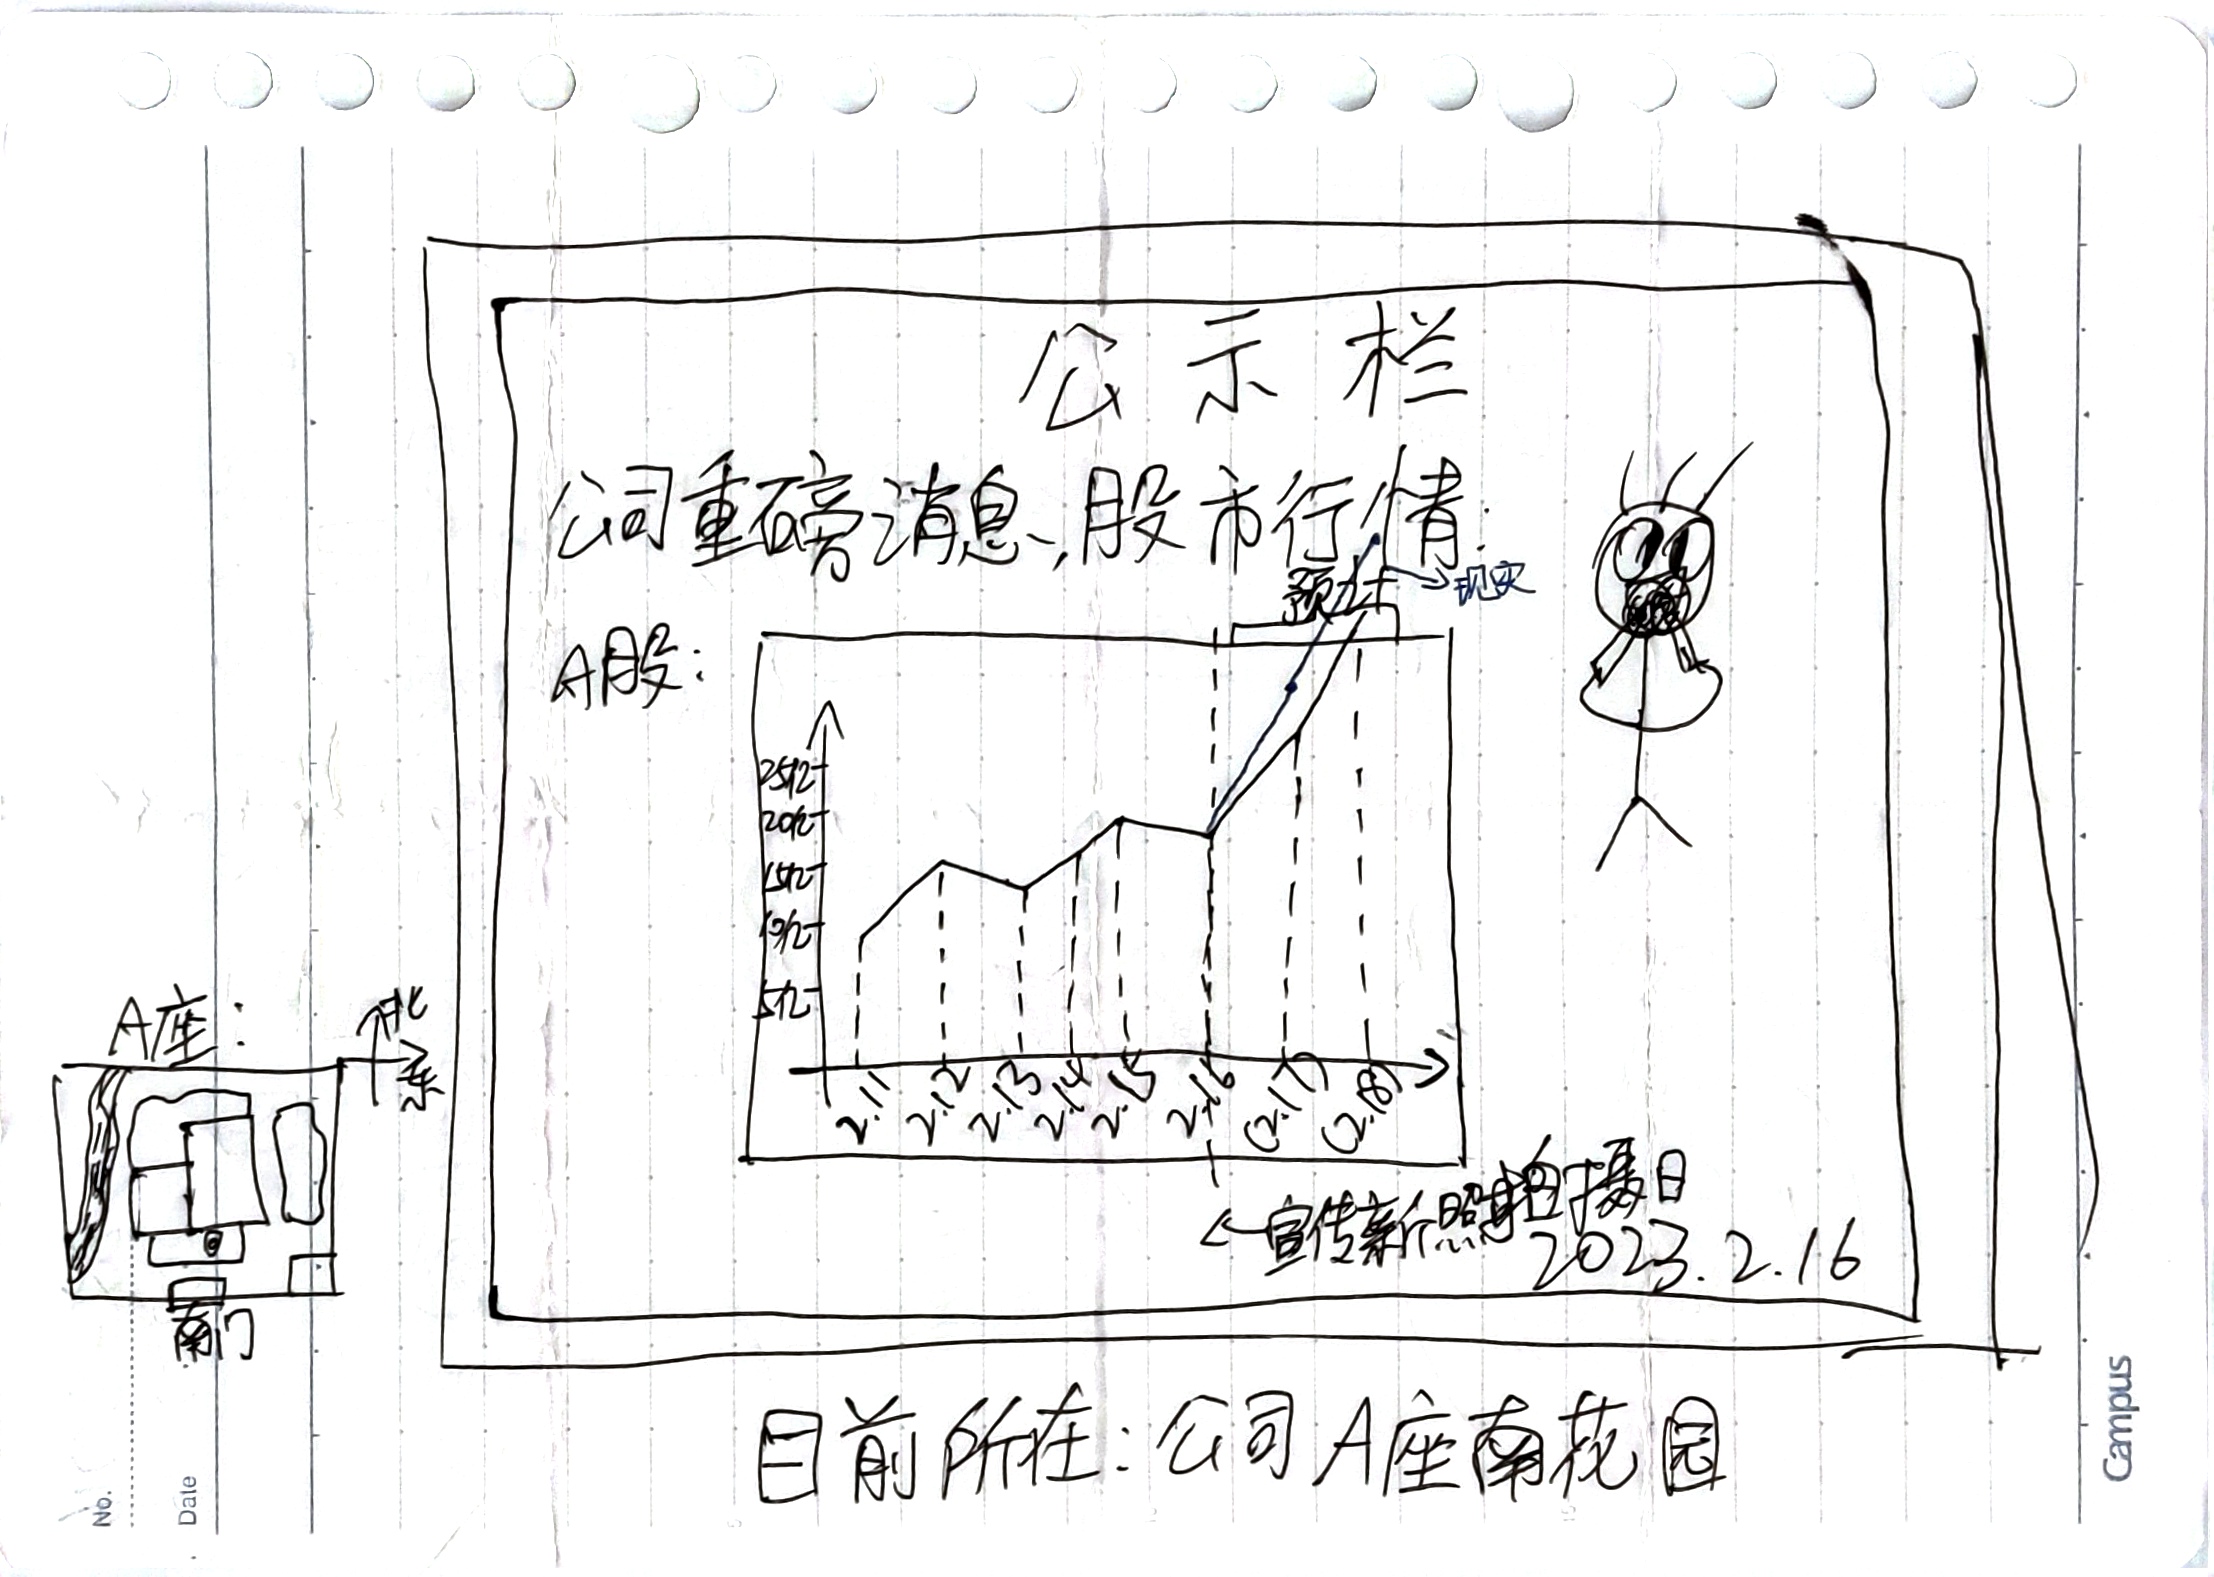 公示栏
公司重磅消息,股市行情:
预计
现实
A股:
25亿
20亿
15亿
10亿
5亿
2.11
2.12
2.13
2.14
2.15
2.16
(2.17)
(2.18)
←宣传新照拍摄日
2023.2.16
A座:
北
东
南门
目前所在:公司A座南花园
No.
Date
Campus